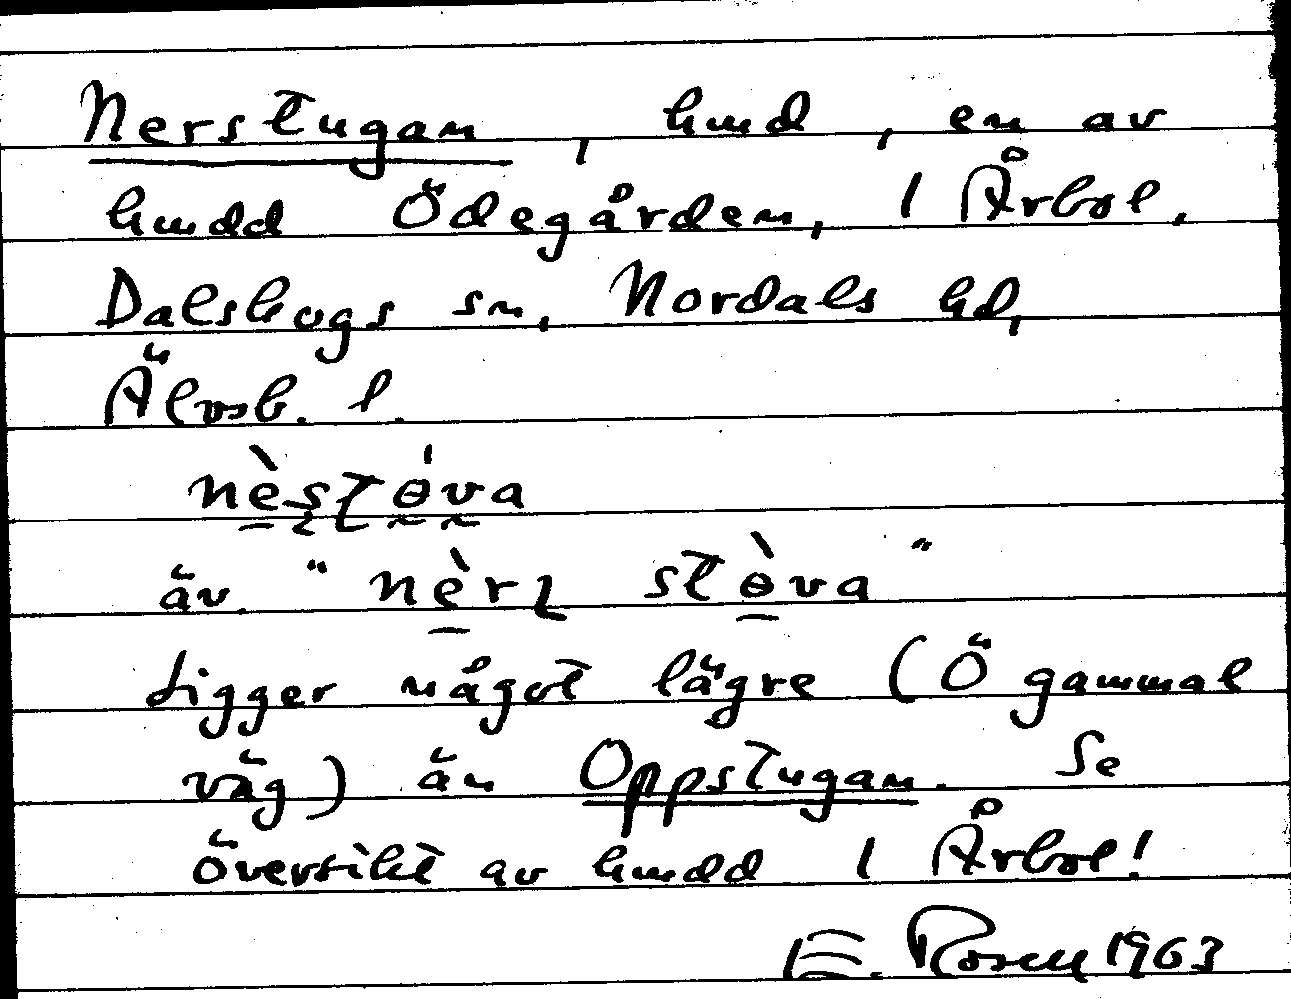 Nerstugan, hmd, en av
hmdd Ödegården, 1 Årbol,
Dalskogs sn, Nordals hd,
Älvsb. l.
nèstɵ́va
äv. "nèrɩ stɵ̀va"
Ligger något lägre (Ö gammal
väg) än Oppstugan. Se
översikt av hmdd 1 Årbol!
E. Rosell 1963